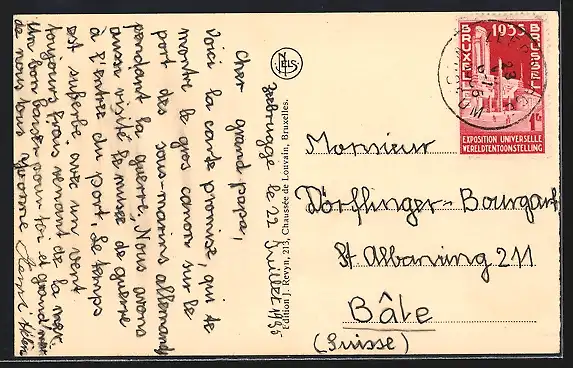 Zeebrugge le 22 Juillet 1935
Cher grand papa,
Voici la carte promise, qui te
montre le gros canon sur le
port des sous-marins allemands
pendant la guerre. Nous avons
aussi visité le musée de guerre
à l'entrée du port. Le temps
est superbe avec un vent
toujours frais venant de la mer.
Un bon baiser pour toi et grand'mère
de nous tous Yvonne
NELS
Edition J. Revyn, 213, Chaussée de Louvain, Bruxelles.
1935
BRUXELLES
BRUSSEL
1F
EXPOSITION UNIVERSELLE
WERELDTENTOONSTELLING
Monsieur
Dörflinger-Bourgart
St Albanring 211
Bâle
(Suisse)